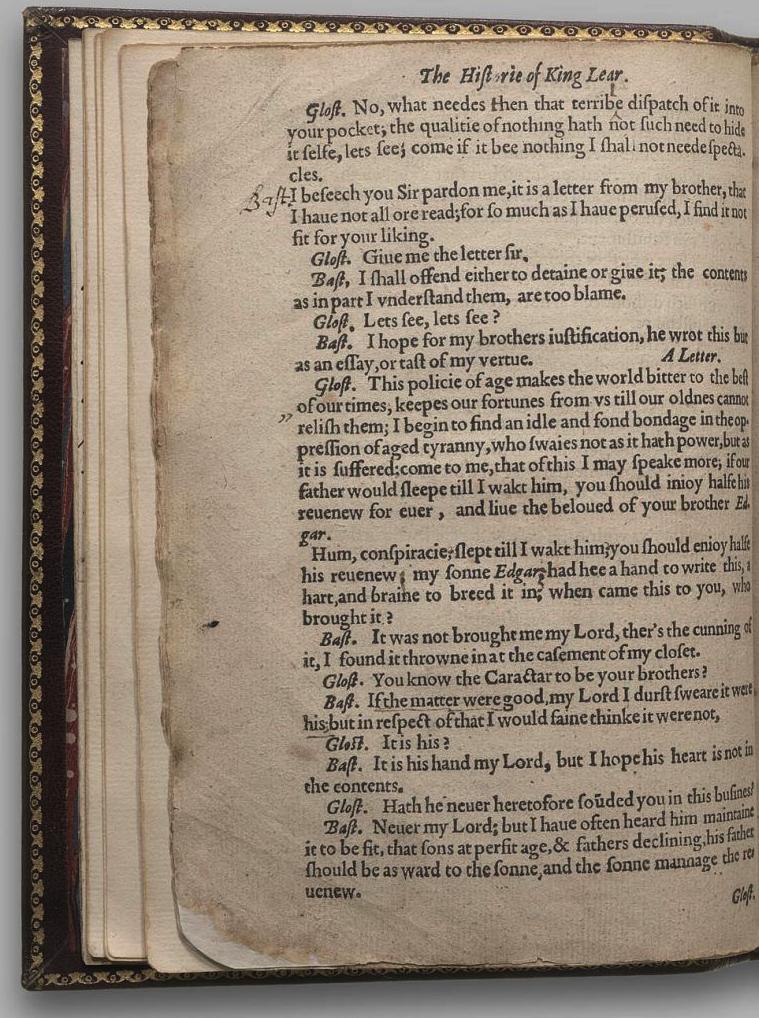 The Hiſtorie of King Lear.
Gloſt. No, what needes then that terribe diſpatch of it into
your pocket, the qualitie of nothing hath not ſuch need to hide
it ſelfe, lets ſee; come if it bee nothing I ſhall not neede ſpecta-
cles.
Baſt. I beſeech you Sir pardon me, it is a letter from my brother, that
I haue not all ore read; for ſo much as I haue peruſed, I find it not
fit for your liking.
Gloſt. Giue me the letter ſir.
Baſt, I ſhall offend either to detaine or giue it; the contents
as in part I vnderſtand them, are too blame.
Gloſt. Lets ſee, lets ſee?
Baſt. I hope for my brothers iuſtification, he wrot this but
as an eſſay, or taſt of my vertue. A Letter.
Gloſt. This policie of age makes the world bitter to the beſt
of our times, keepes our fortunes from vs till our oldnes cannot
” reliſh them; I begin to find an idle and fond bondage in the op-
preſſion of aged tyranny, who ſwaies not as it hath power, but as
it is ſuffered; come to me, that of this I may ſpeake more; if our
father would ſleepe till I wakt him, you ſhould inioy halfe his
reuenew for euer, and liue the beloued of your brother Ed-
gar.
Hum, conſpiracie, ſlept till I wakt him; you ſhould enioy halfe
his reuenew; my ſonne Edgar, had hee a hand to write this, a
hart, and braine to breed it in; when came this to you, who
brought it?
Baſt. It was not brought me my Lord, ther's the cunning of
it, I found it throwne in at the caſement of my cloſet.
Gloſt. You know the Caractar to be your brothers?
Baſt. If the matter were good, my Lord I durſt ſweare it were
his; but in reſpect of that I would faine thinke it were not,
Gloſt. It is his?
Baſt. It is his hand my Lord, but I hope his heart is not in
the contents.
Gloſt. Hath he neuer heretofore ſoūded you in this buſines?
Baſt. Neuer my Lord; but I haue often heard him maintaine
it to be fit, that ſons at perfit age, & fathers declining, his father
ſhould be as ward to the ſonne, and the ſonne mannage the re-
uenew.
Gloſt.